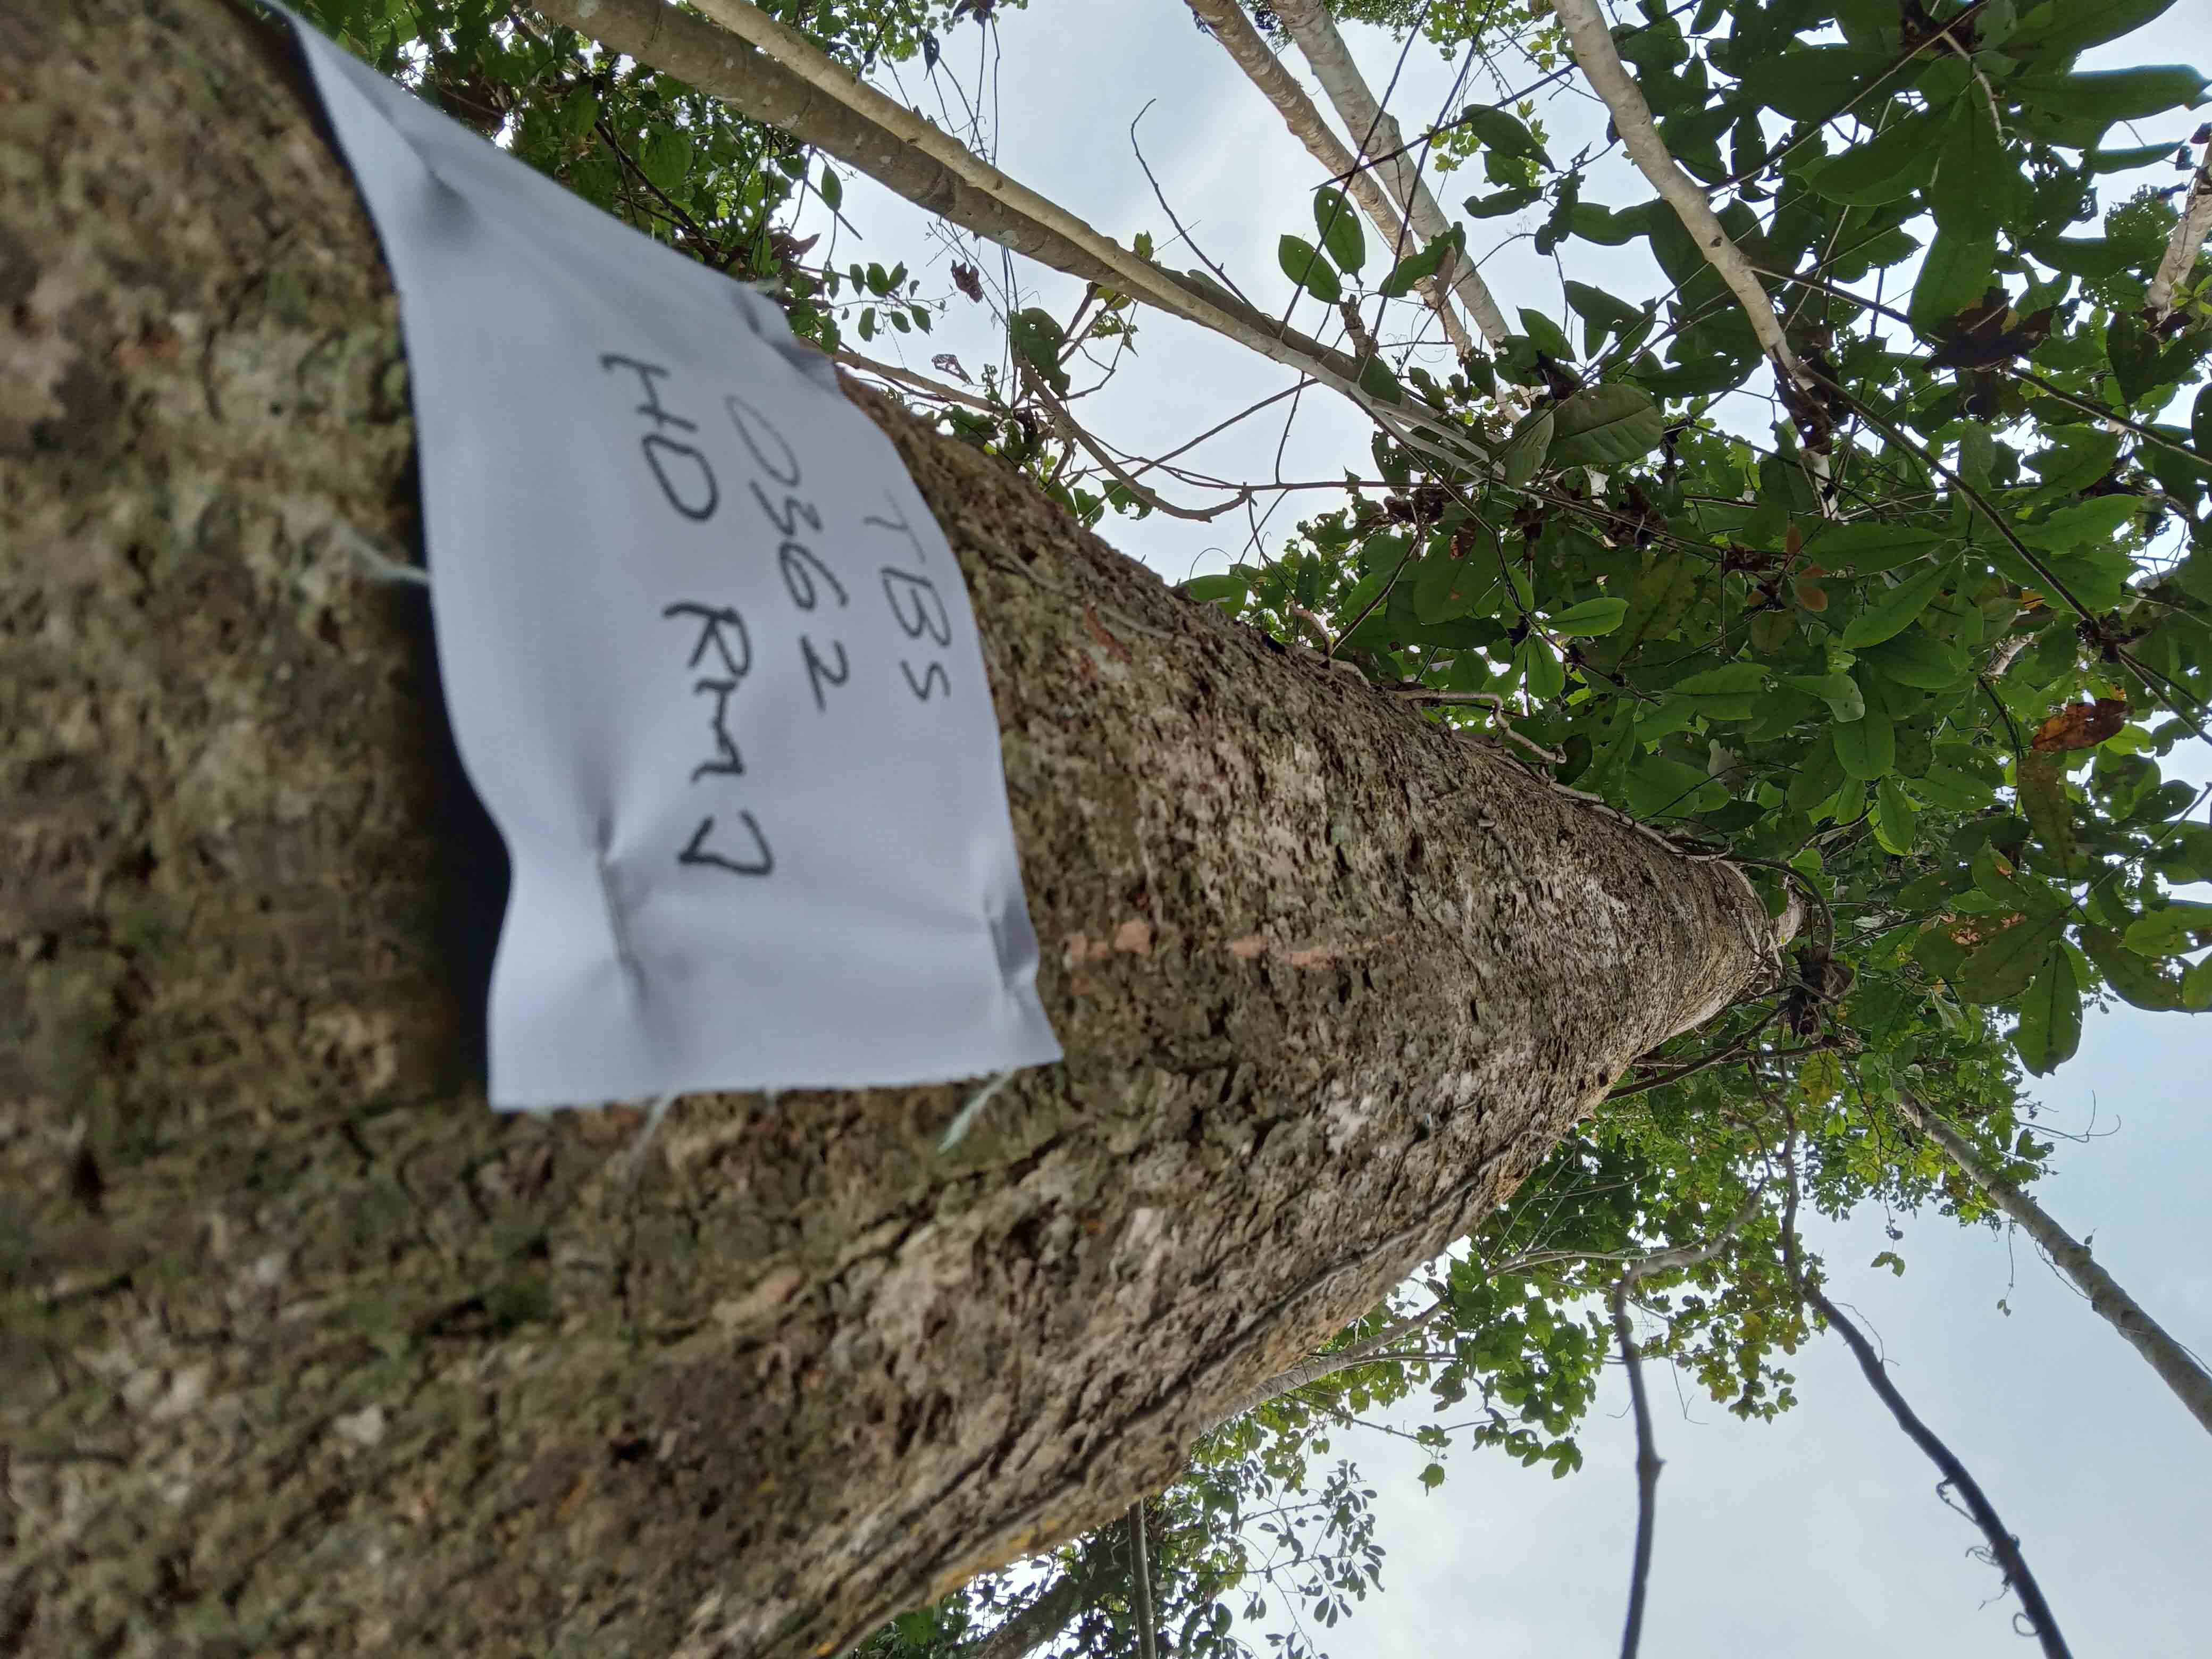 TBS
0362
HD RMJ